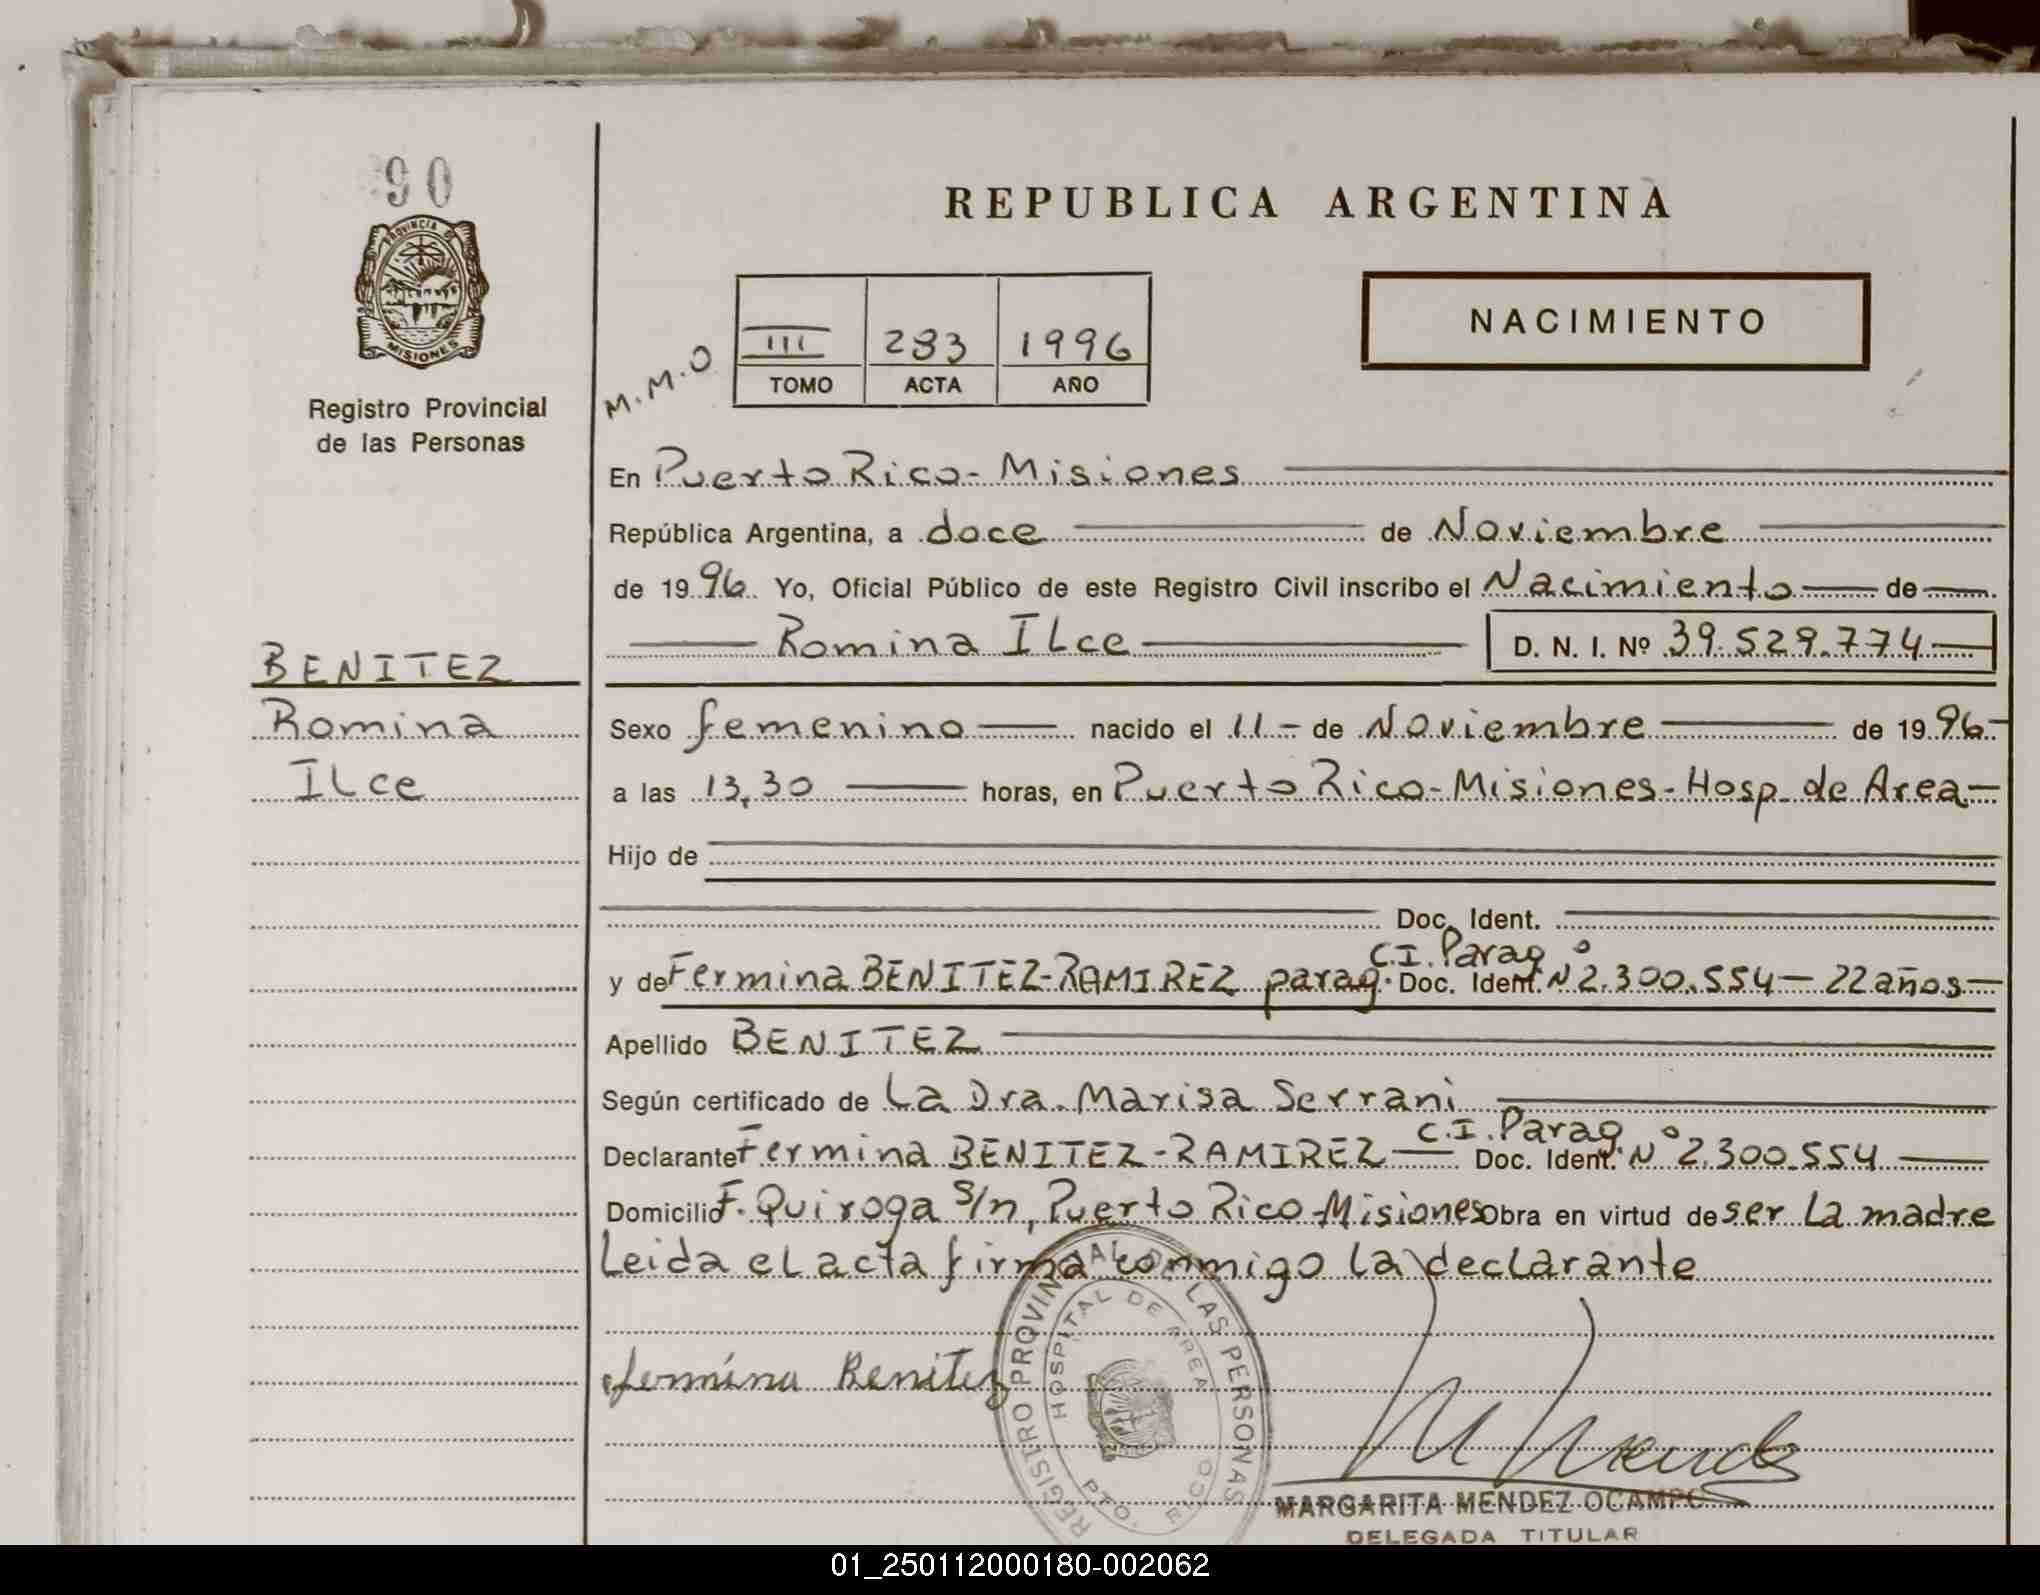 90
PROVINCIA DE
MISIONES
Registro Provincial
de las Personas
BENITEZ
Romina
Ilce
REPUBLICA ARGENTINA
NACIMIENTO
M.M.O
III 283 1996
TOMO ACTA AÑO
En Puerto Rico- Misiones
República Argentina, a doce de Noviembre
de 1996. Yo, Oficial Público de este Registro Civil inscribo el Nacimiento de
Romina Ilce D. N. I. Nº 39.529.774
Sexo femenino nacido el 11 - de Noviembre de 1996-
a las 13,30 horas, en Puerto Rico-Misiones-Hosp. de Area
Hijo de
Doc. Ident.
C.I. Parag
y de Fermina BENITEZ-RAMIREZ parag. Doc. Ident. Nº 2.300.554- 22 años
Apellido BENITEZ
Según certificado de La Dra. Marisa Serrani
C.I. Parag
Declarante Fermina BENITEZ-RAMIREZ Doc. Ident. Nº 2.300.554
Domicilio F. Quiroga s/n, Puerto Rico-Misiones obra en virtud de ser la madre
Leida el acta firma conmigo la declarante
Fermina Benitez
REGISTRO PROVINCIAL DE LAS PERSONAS
HOSPITAL DE AREA
PTO. RICO
M Mendez
MARGARITA MENDEZ OCAMPO
DELEGADA TITULAR
01_250112000180-002062